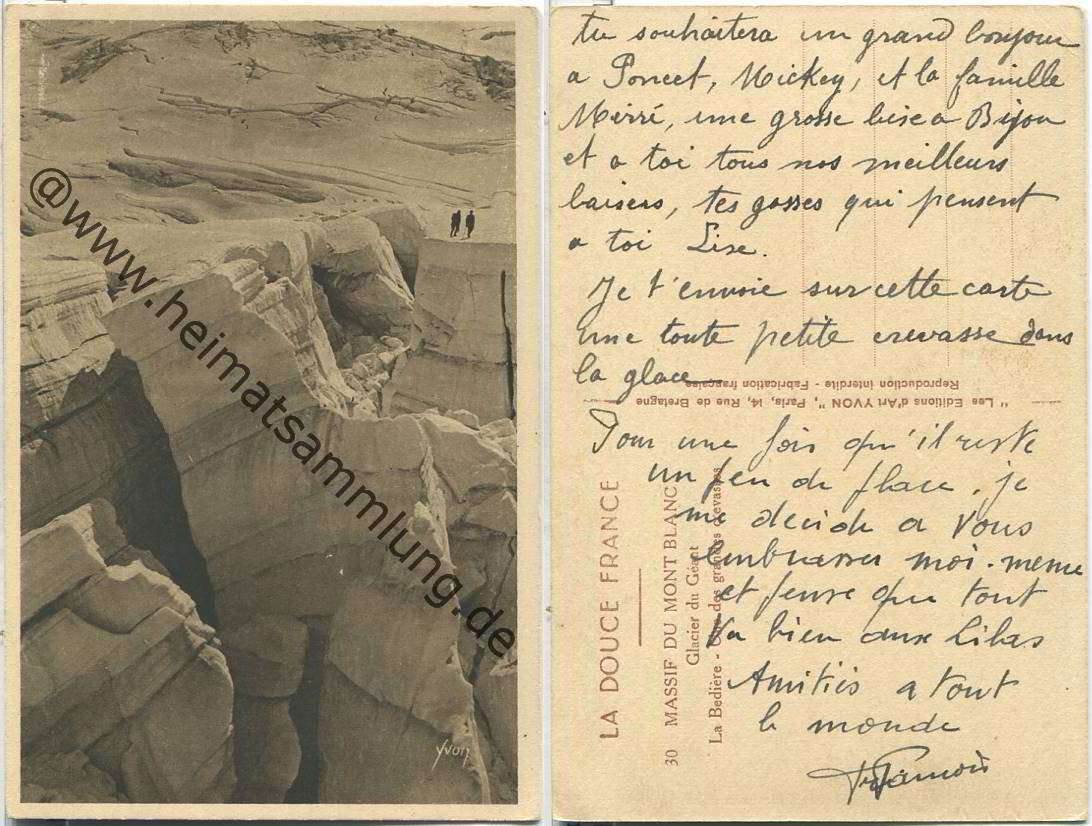 @www.heimatsammlung.de
Yvon
tu souhaitera un grand bonjour
a Poncet, Mickey, et la famille
Mirré, une grosse bise a Bijou
et a toi tous nos meilleurs
baisers, tes gosses qui pensent
a toi Lise.
Je t'envoie sur cette carte
une toute petite crevasse dans
la glace
Reproduction interdite - Fabrication française
"Les Editions d'Art YVON", Paris, 14, Rue de Bretagne
Pour une fois qu'il reste
un peu de place, je
me decide a vous
embrasser moi-meme
et pense que tout
va bien aux Lilas
Amitiés a tout
le monde
LA DOUCE FRANCE
30 MASSIF DU MONT BLANC
Glacier du Géant
La Bedière - des grandes crevasses